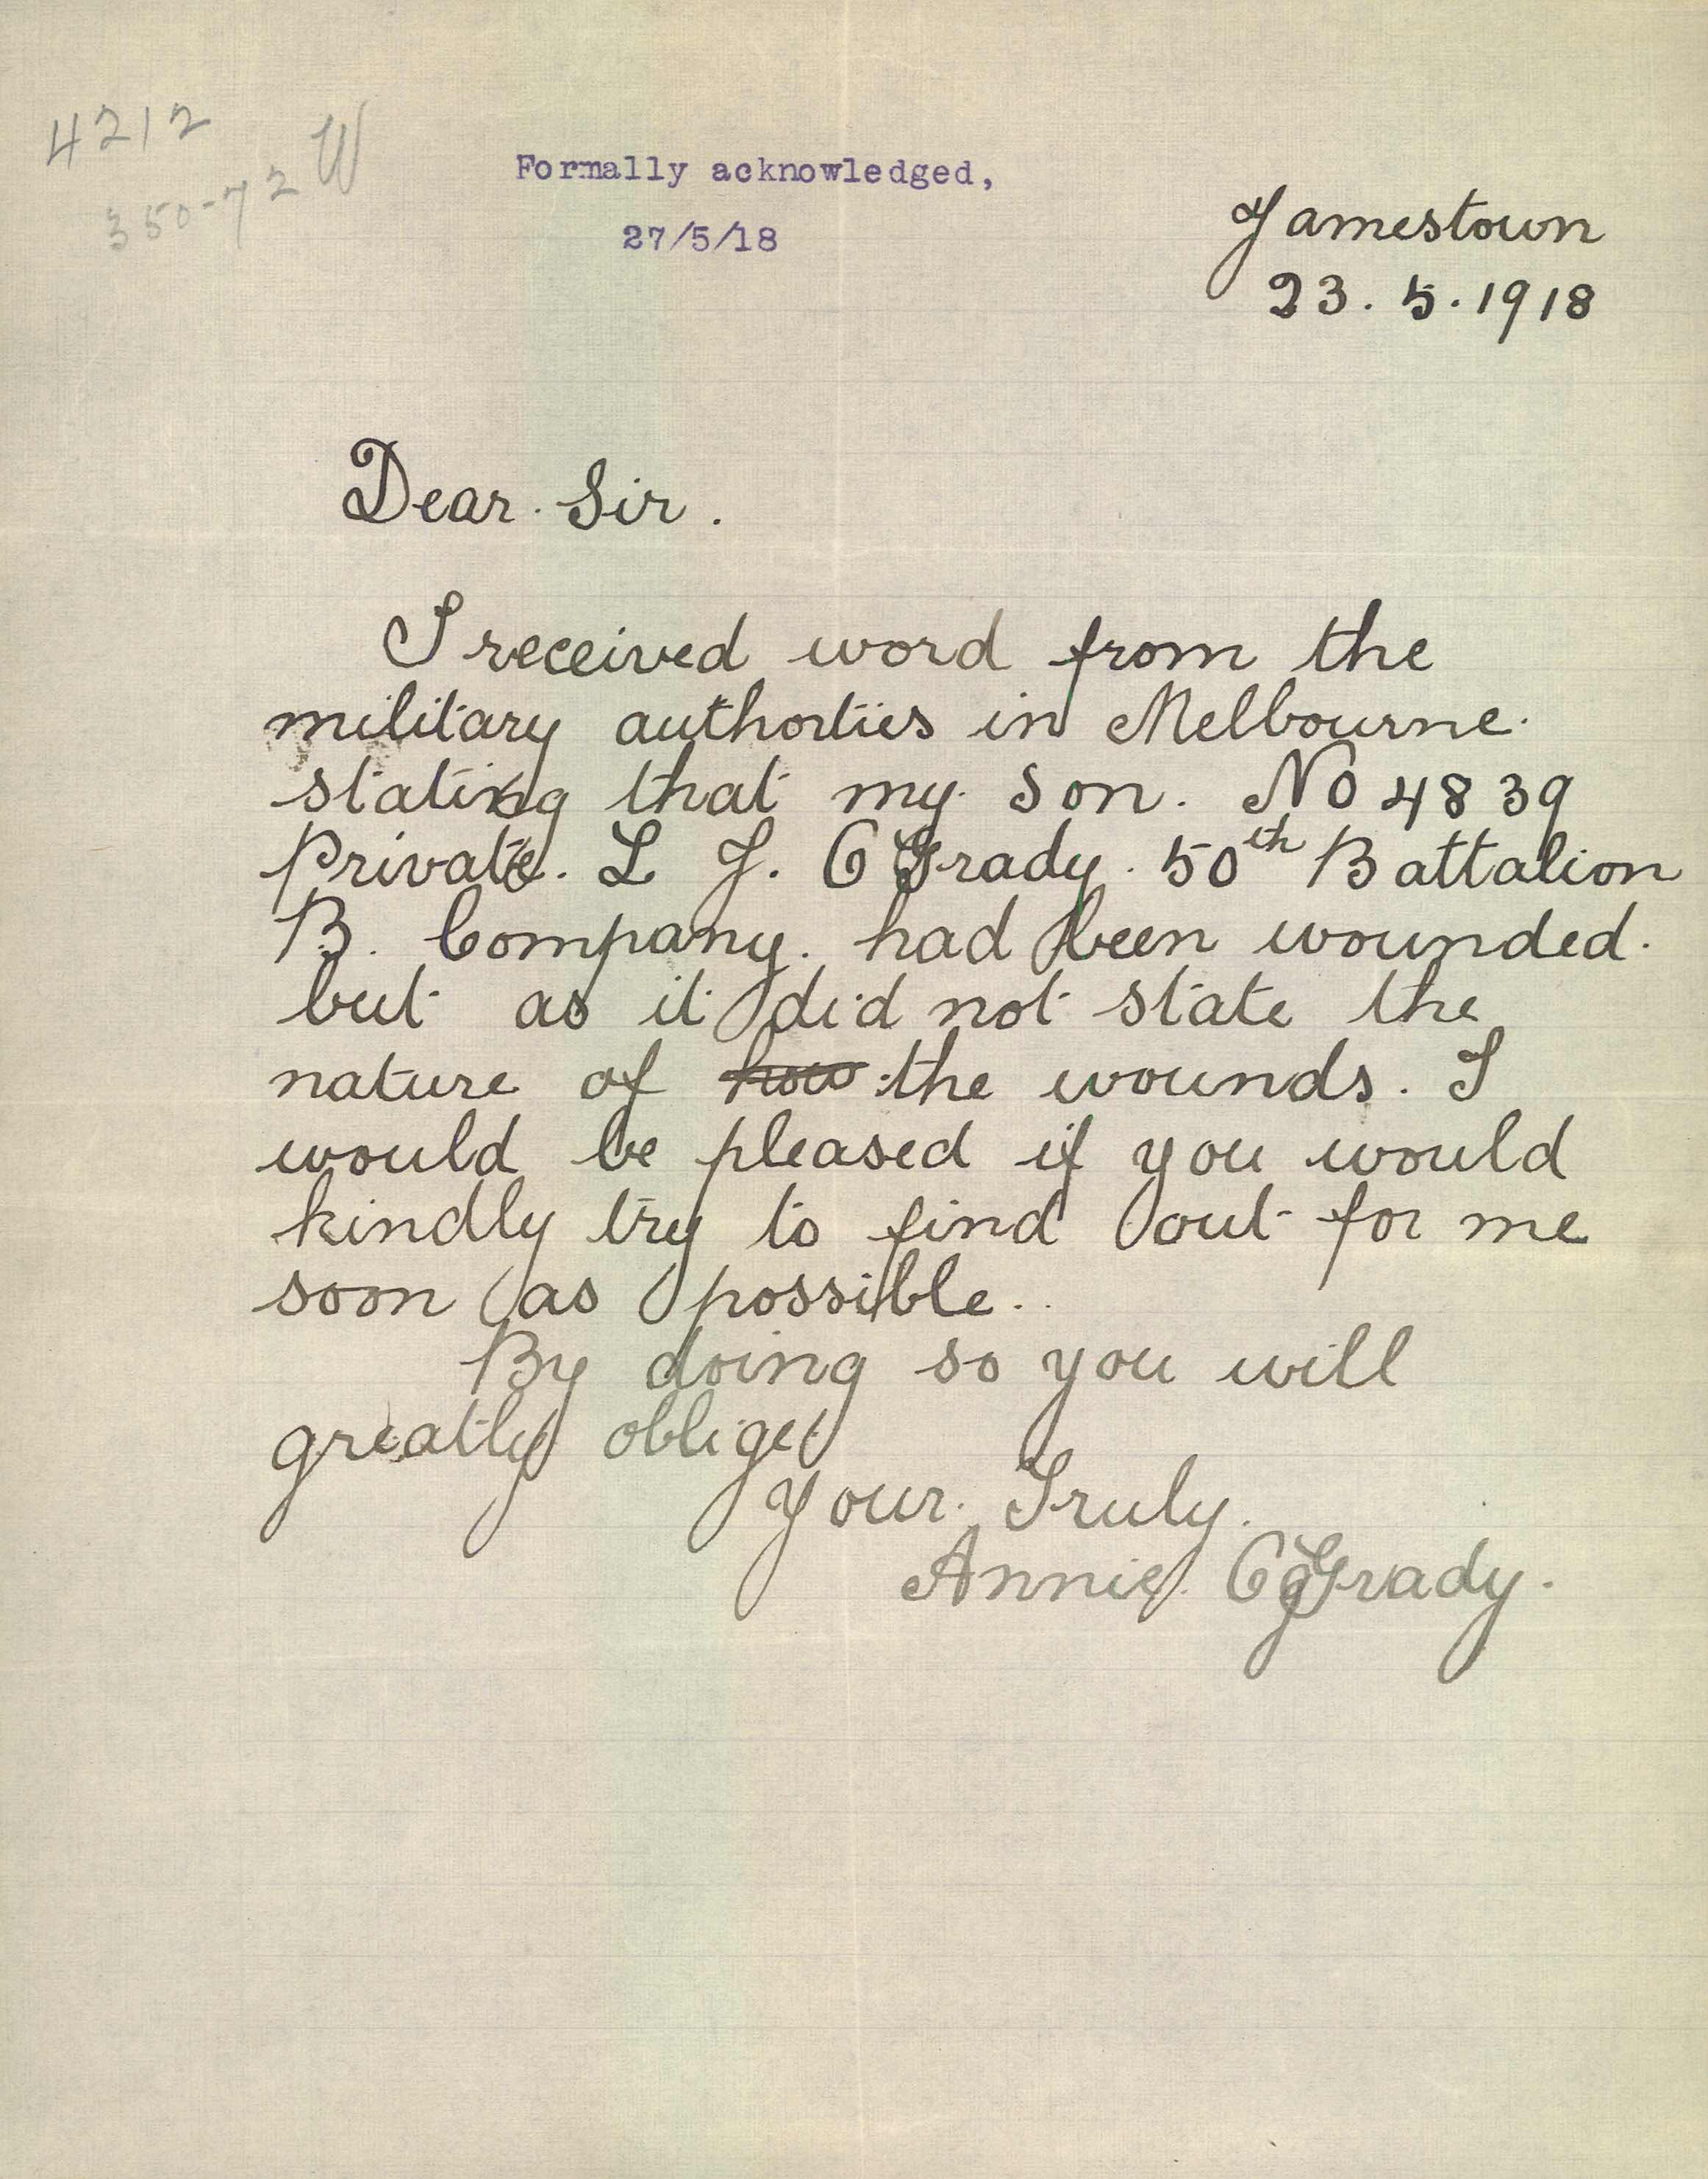 4212
350-72 W
Formally acknowledged,
27/5/18
Jamestown
23.5.1918
Dear. Sir.
I received word from the
military authorties in Melbourne.
stating that my son. No 4839
Private. L J. O Grady. 50th Battalion
B. Company. had been wounded.
but as it did not state the
nature of how the wounds. I
would be pleased if you would
kindly try to find out for me
soon as possible..
By doing so you will
greatly oblige
Your. Truly.
Annie. O Grady.